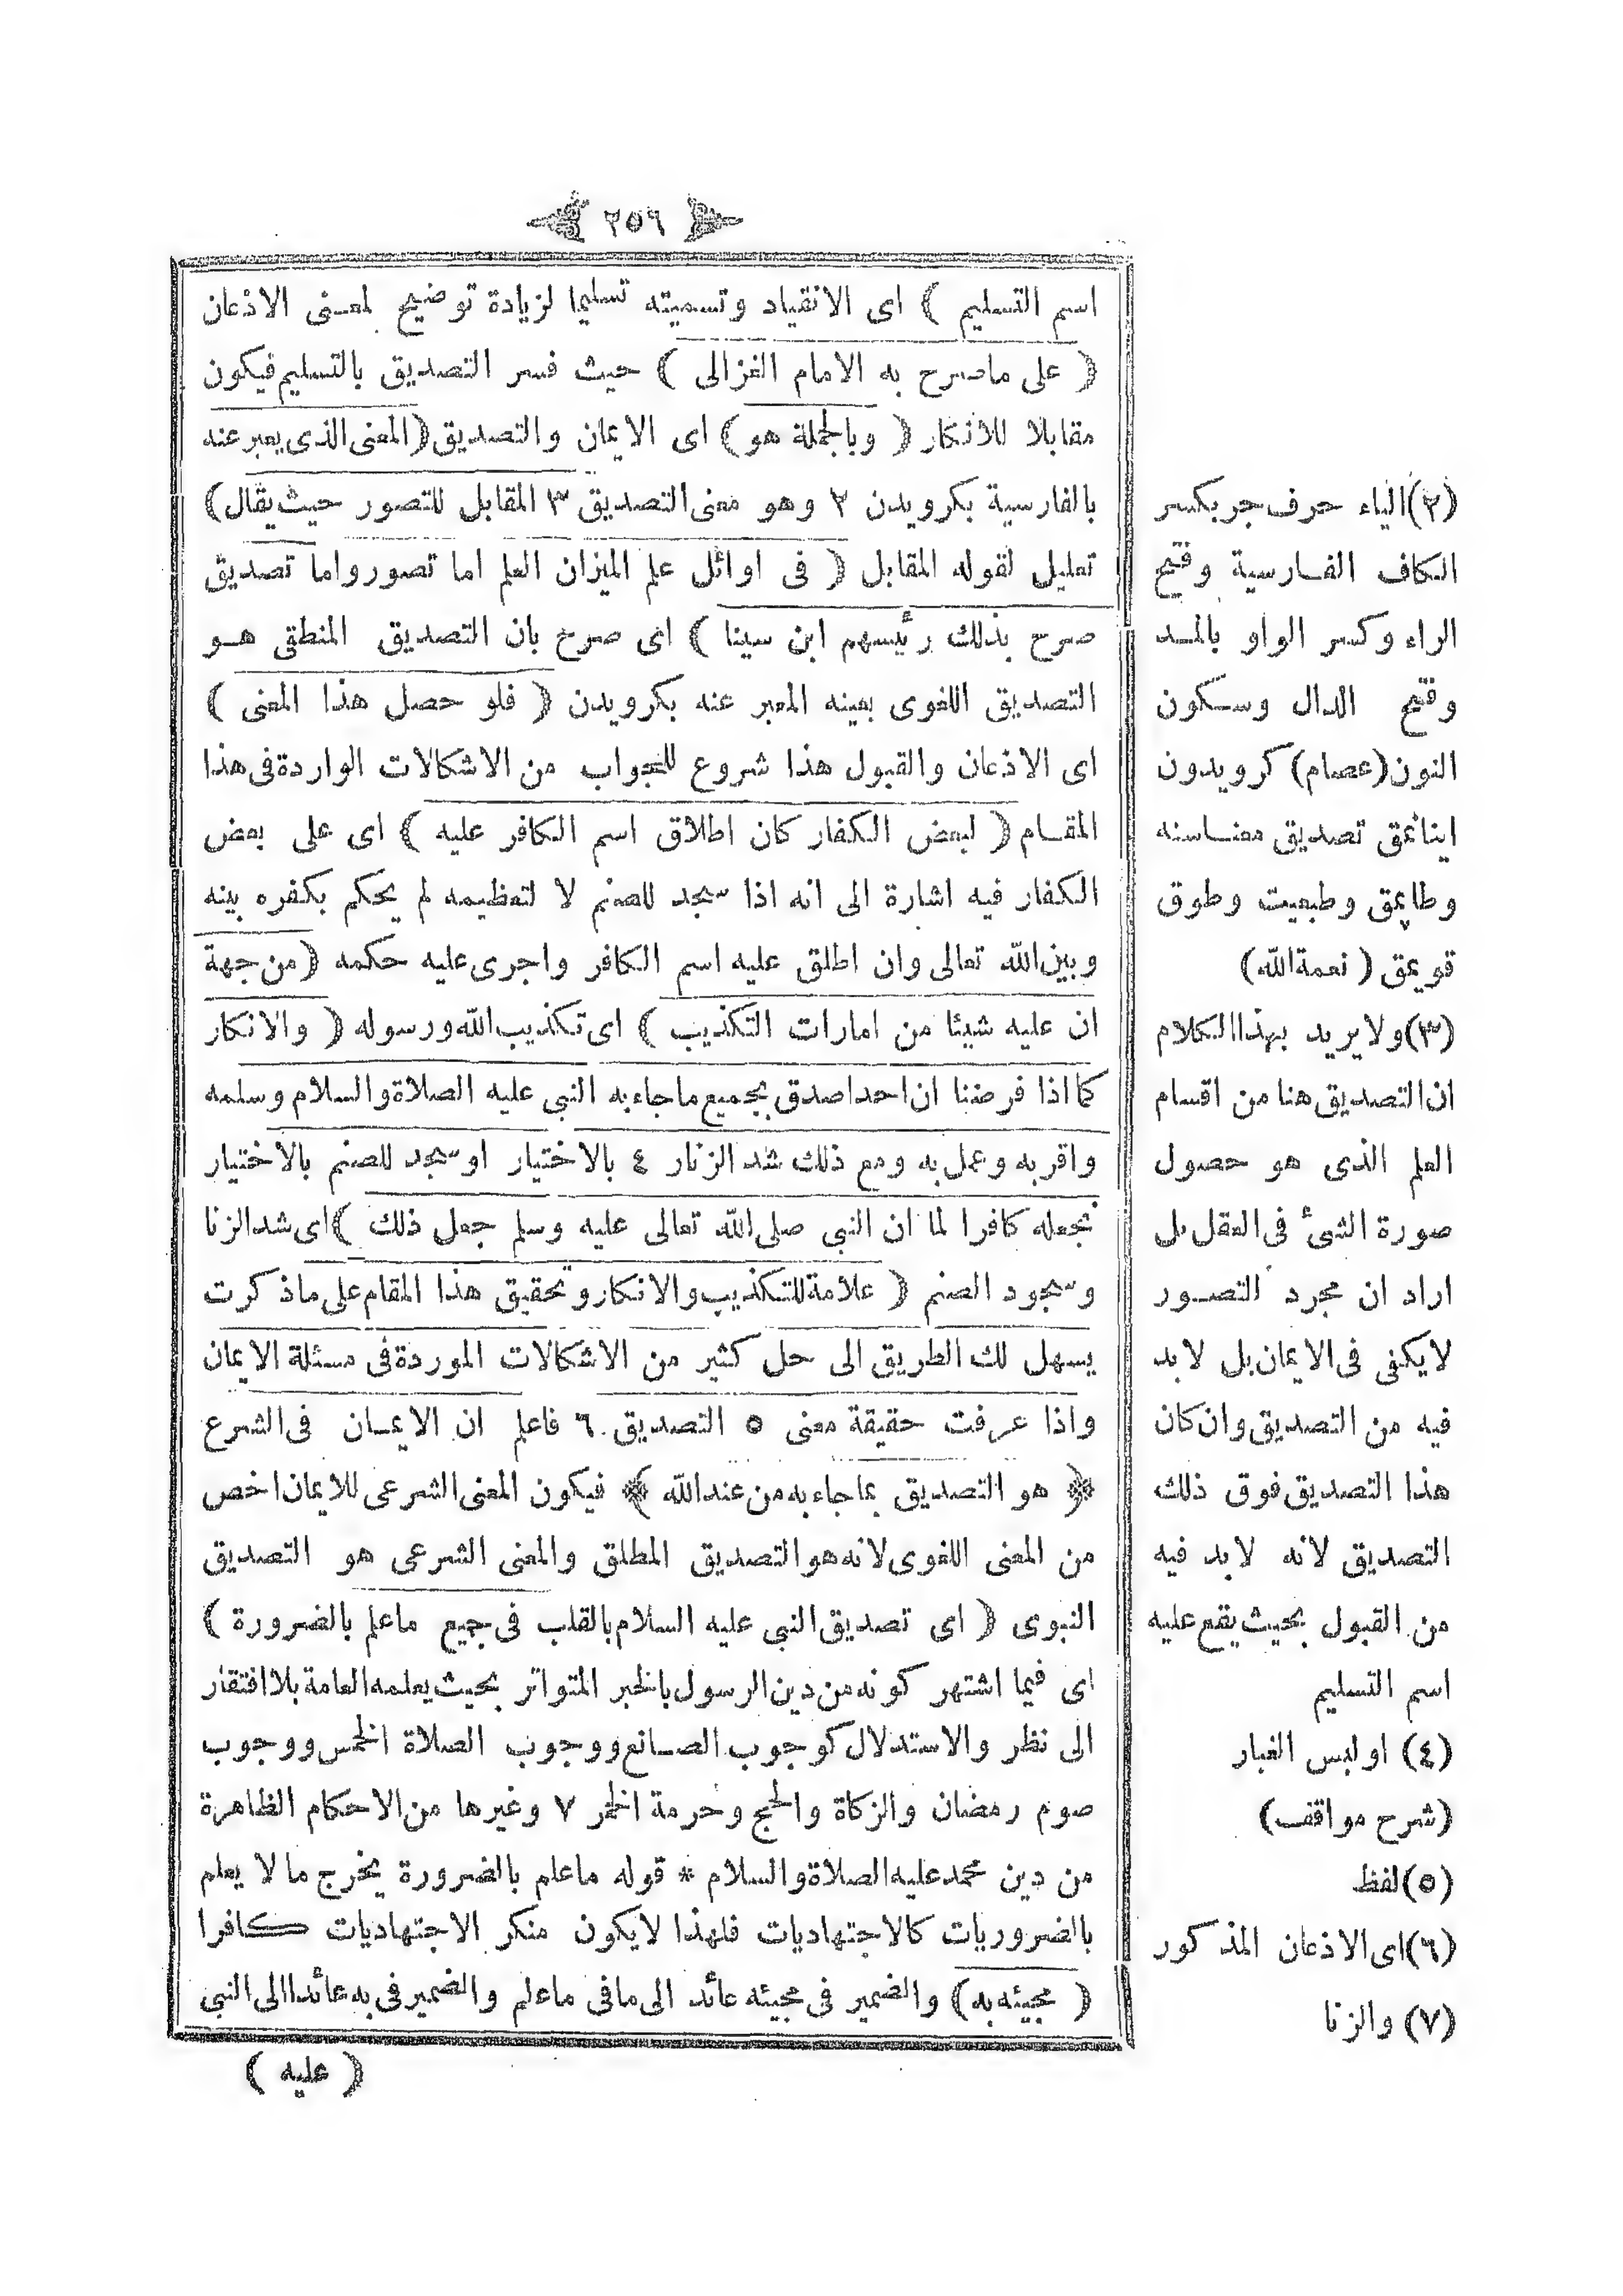 ٢٥٦
اسم التسليم ) اى الانقياد وتسميته تسليما لزيادة توضيح لمعنى الاذعان
( على ماصرح به الامام الغزالى ) حيث فسر التصديق بالتسليم فيكون
مقابلا للانكار ( وبالجملة هو ) اى الايمان والتصديق ( المعنى الذى يعبر عنه
بالفارسية بكرويدن ٢ وهو معنى التصديق ٣ المقابل للتصور حيث يقال )
تعليل لقوله المقابل ( فى اوائل علم الميزان العلم اما تصور واما تصديق
صرح بذلك رئيسهم ابن سينا ) اى صرح بان التصديق المنطقى هو
التصديق اللغوى بعينه المعبر عنه بكرويدن ( فلو حصل هذا المعنى )
اى الاذعان والقبول هذا شروع للجواب من الاشكالات الواردة فى هذا
المقام ( لبعض الكفار كان اطلاق اسم الكافر عليه ) اى على بعض
الكفار فيه اشارة الى انه اذا سجد للصنم لا لتعظيمه لم يحكم بكفره بينه
وبين الله تعالى وان اطلق عليه اسم الكافر واجرى عليه حكمه ( من جهة
ان عليه شيئا من امارات التكذيب ) اى تكذيب الله ورسوله ( والانكار
كما اذا فرضنا ان احدا صدق بجميع ماجاء به النبى عليه الصلاة والسلام وسلمه
واقر به وعمل به ومع ذلك شد الزنار ٤ بالاختيار او سجد للصنم بالاختيار
نجعله كافرا لما ان النبى صلى الله تعالى عليه وسلم جعل ذلك ) اى شد الزنا
وسجود الصنم ( علامة للتكذيب والانكار وتحقيق هذا المقام على ماذكرت
يسهل لك الطريق الى حل كثير من الاشكالات الموردة فى مسئلة الايمان
واذا عرفت حقيقة معنى ٥ التصديق ٦ فاعلم ان الايمان فى الشرع
﴿ هو التصديق بماجاء به من عند الله ﴾ فيكون المعنى الشرعى للايمان اخص
من المعنى اللغوى لانه هو التصديق المطلق والمعنى الشرعى هو التصديق
النبوى ( اى تصديق النبى عليه السلام بالقلب فى جميع ماعلم بالضرورة )
اى فيما اشتهر كونه من دين الرسول بالخبر المتواتر بحيث يعلمه العامة بلا افتقار
الى نظر والاستدلال كوجوب الصانع ووجوب الصلاة الخمس ووجوب
صوم رمضان والزكاة والحج وحرمة الخمر ٧ وغيرها من الاحكام الظاهرة
من دين محمد عليه الصلاة والسلام * قوله ماعلم بالضرورة يخرج ما لا يعلم
بالضروريات كالاجتهاديات فلهذا لايكون منكر الاجتهاديات كافرا
( مجيئه به ) والضمير فى مجيئه عائد الى مافى ماعلم والضمير فى به عائد الى النبى
( عليه )
(٢) الباء حرف جر بكسر
الكاف الفارسية وفتح
الراء وكسر الواو بالمد
وفتح الدال وسكون
النون (عصام) كرويدون
اينانمق تصديق معناسنه
وطاپمق وطبيعت وطوق
قويمق ( نعمة الله)
(٣) ولايريد بهذا الكلام
ان التصديق هنا من اقسام
العلم الذى هو حصول
صورة الشئ فى العقل بل
اراد ان مجرد التصور
لايكفى فى الايمان بل لابد
فيه من التصديق وان كان
هذا التصديق فوق ذلك
التصديق لانه لابد فيه
من القبول بحيث يقع عليه
اسم التسليم
(٤) او لبس الغيار
(شرح مواقف)
(٥) لفظ
(٦) اى الاذعان المذكور
(٧) والزنا